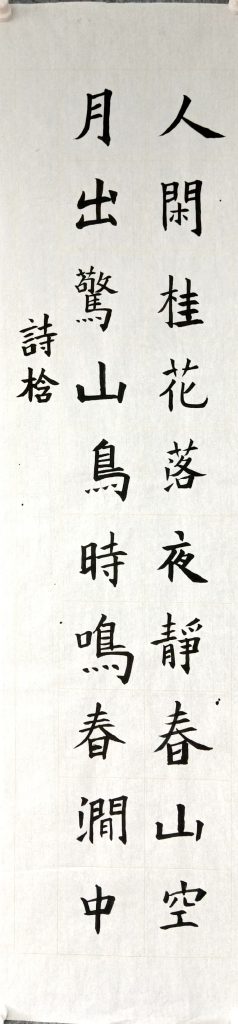 人閑桂花落夜靜春山空
月出驚山鳥時鳴春澗中
詩梒